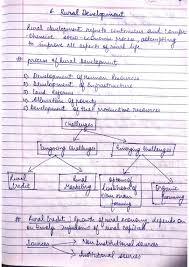 6. Rural Development
Rural development refers to continuous and compre-
hensive socio-economic process, attempting
to improve all aspects of rural life
* process of Rural Development
1) Development of Human Resources
2) Development of Infrastructure
3) Land reforms
4) Alleviation of poverty
5) Development of the productive resources
Challenges
Ongoing Challenges Emerging Challenges
Rural Credit
Rural Marketing
Organic Farming
* Rural Credit : Growth of rural economy depends on
timely of rural capital
Sources → Non Institutional sources
→ Institutional sources